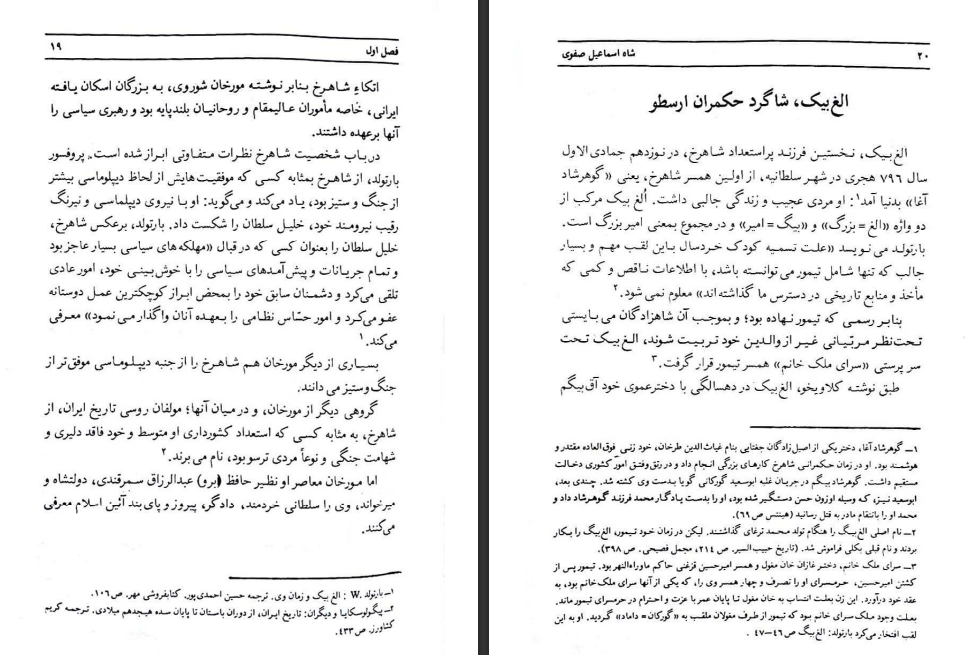 فصل اول ۱۹
اتکاءِ شاهرخ بنابر نوشته مورخان شوروی، به بزرگان اسکان یافته
ایرانی، خاصه مأموران عالیمقام و روحانیان بلندپایه بود و رهبری سیاسی را
آنها برعهده داشتند.
در باب شخصیت شاهرخ نظرات متفاوتی ابراز شده است. پروفسور
بارتولد، از شاهرخ بمثابه کسی که موفقیت‌هایش از لحاظ دیپلوماسی بیشتر
از جنگ و ستیز بود، یاد می‌کند و می‌گوید: او با نیروی دیپلماسی و نیرنگ
رقیب نیرومند خود، خلیل سلطان را شکست داد. بارتولد، برعکس شاهرخ،
خلیل سلطان را بعنوان کسی که در قبال «مهلکه‌های سیاسی بسیار عاجز بود
و تمام جریانات و پیش‌آمدهای سیاسی را با خوش‌بینی خود، امور عادی
تلقی می‌کرد و دشمنان سابق خود را بمحض ابراز کوچکترین عمل دوستانه
عفو می‌کرد و امور حسّاس نظامی را بعهده آنان واگذار می‌نمود» معرفی
می‌کند.۱
بسیاری از دیگر مورخان هم شاهرخ را از جنبه دیپلوماسی موفق‌تر از
جنگ و ستیز می‌دانند.
گروهی دیگر از مورخان، و در میان آنها؛ مولفان روسی تاریخ ایران، از
شاهرخ، به مثابه کسی که استعداد کشورداری او متوسط و خود فاقد دلیری و
شهامت جنگی و نوعاً مردی ترسو بود، نام می‌برند.۲
اما مورخان معاصر او نظیر حافظ (برو) عبدالرزاق سمرقندی، دولتشاه و
میرخواند، وی را سلطانی خردمند، دادگر، پیروز و پای‌بند آئین اسلام معرفی
می‌کنند.
۱ــ بارتولد W. : الغ بیک و زمان وی. ترجمه حسین احمدی‌پور. کتابفروشی مهر. ص ۱۰۶.
۲ــ پیگولوسکایا و دیگران: تاریخ ایران، از دوران باستان تا پایان سده هیجدهم میلادی. ترجمه کریم
کشاورز. ص ۴۳۳.
۲۰ شاه اسماعیل صفوی
الغ‌بیک، شاگرد حکمران ارسطو
الغ‌بیک، نخستین فرزند پراستعداد شاهرخ، در نوزدهم جمادی‌الاول
سال ۷۹۶ هجری در شهر سلطانیه، از اولین همسر شاهرخ، یعنی «گوهرشاد
آغا» بدنیا آمد۱: او مردی عجیب و زندگی جالبی داشت. اُلغ بیک مرکب از
دو واژه «الغ = بزرگ» و «بیگ = امیر» و در مجموع بمعنی امیر بزرگ است.
بارتولد می‌نویسد «علت تسمیه کودک خردسال باین لقب مهم و بسیار
جالب که تنها شامل تیمور می‌توانسته باشد، با اطلاعات ناقص و کمی که
مأخذ و منابع تاریخی در دسترس ما گذاشته‌اند» معلوم نمی‌شود.۲
بنابر رسمی که تیمور نهاده بود؛ و بموجب آن شاهزادگان می‌بایستی
تحت‌نظر مربّیانی غیر از والدین خود تربیت شوند، الغ‌بیک تحت
سرپرستی «سرای ملک خانم» همسر تیمور قرار گرفت.۳
طبق نوشته کلاویخو، الغ‌بیک در دهسالگی با دخترعموی خود آق‌بیگم
۱ــ گوهرشاد آغا، دختر یکی از اصیل‌زادگان جغتایی بنام غیاث‌الدین طرخان، خود زنی فوق‌العاده مقتدر و
هوشمند بود. او در زمان حکمرانی شاهرخ کارهای بزرگی انجام داد و در رتق و فتق امور کشوری دخالت
مستقیم داشت. گوهرشاد بیگم در جریان غلبه ابوسعید گورکانی گویا بدست وی کشته شد. چندی بعد،
ابوسعید نیز، که وسیله اوزون حسن دستگیر شده بود، او را بدست یادگار محمد فرزند گوهرشاد داد و
محمد او را بانتقام مادر به قتل رسانید (هینتس ص ۶۹).
۲ــ نام اصلی الغ‌بیگ را هنگام تولد محمد ترغای گذاشتند. لیکن در زمان خود تیمور، الغ‌بیگ را بکار
بردند و نام قبلی بکلی فراموش شد. (تاریخ حبیب‌السیر. ص ۲۱۴، مجمل فصیحی. ص ۳۹۸).
۳ــ سرای ملک خانم، دختر غازان خان مغول و همسر امیرحسین قزغنی حاکم ماوراءالنهر بود. تیمور پس از
کشتن امیرحسین، حرمسرای او را تصرف و چهار همسر وی را، که یکی از آنها سرای ملک‌خانم بود، به
عقد خود درآورد. این زن بعلت انتساب به خان مغول تا پایان عمر با عزت و احترام در حرمسرای تیمور ماند.
بعلت وجود ملک سرای خانم بود که تیمور از طرف مغولان ملقب به «گورکان = داماد» گردید. او به این
لقب افتخار می‌کرد بارتولد: الغ‌بیگ ص ۴۶ــ۴۷.